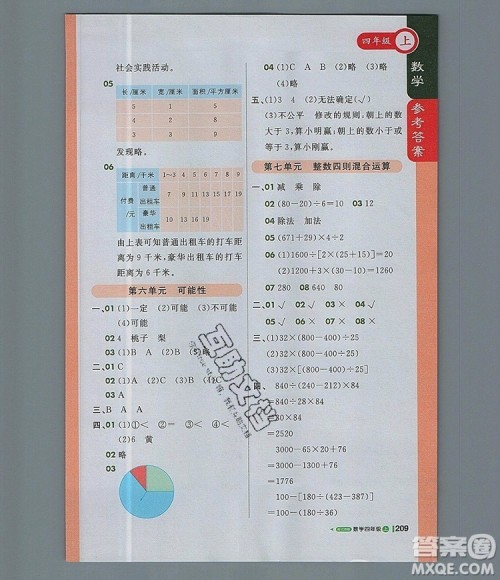 四年级 上
数学
参考答案
社会实践活动。
05
长/厘米 宽/厘米 面积/平方厘米
5 1 5
4 2 8
3 3 9
发现略。
06
距离/千米 1~3 4 5 6 7 8 9
付费/元
普通出租车 7 9 11 13 15 17 19
豪华出租车
由上表可知普通出租车的打车距
离为9千米,豪华出租车的打车距
离为6千米。
第六单元 可能性
一、01 (1)一定 (2)可能 (3)不可能
(4)可能
02 4 桃子 梨
03 (1)A (2)B (3)B (4)B (5)略
二、01 C
02 (1)B (2)A
三、B A A
四、01 (1)①< ②= ③< ④<
(2)6 黄
02 略
03
04 (1)C A B (2)略 (3)略
(4)略
五、(1)3 4 (2)无法确定(√)
(3)不公平 修改的规则,朝上的数
大于3,算小明赢,朝上的数小于
4,算小刚赢。
第七单元 整数四则混合运算
一、01 减 乘 除
02 (80-20)÷6=10 03 12
04 除法 加法
05 (671+29)×4÷2
06 (1)1600÷[2×(25+15)]=20
(2)1200+3×(50-30)=1260
07 280 08 640 80
二、01 √ 02 √ 03 × 04 ×
05 √ 06 √ 07 × 08 ×
三、(1)32×(800-400)÷25
(2)32×(800-400÷25)
(3)32×[(800-400)÷25]
四、 840÷28×84
=30×84
=2520
3000-65×20+76
=3000-1300+76
=1776
100-[180÷(23-18)]
=100-(180÷36)
互助文档
数学四年级 上 209
答案圈
MXQE.COM